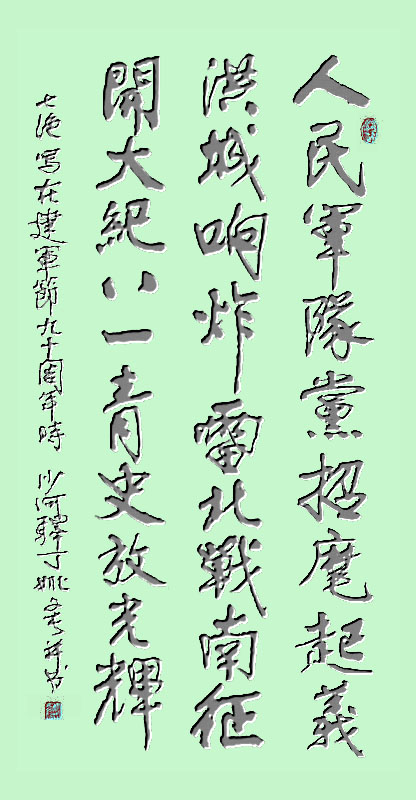 人民軍隊黨招麾起義
洪城响炸雷北戰南征
開大紀八一青史放光輝
七绝 寫在建軍節九十周年時 沙河驛丁